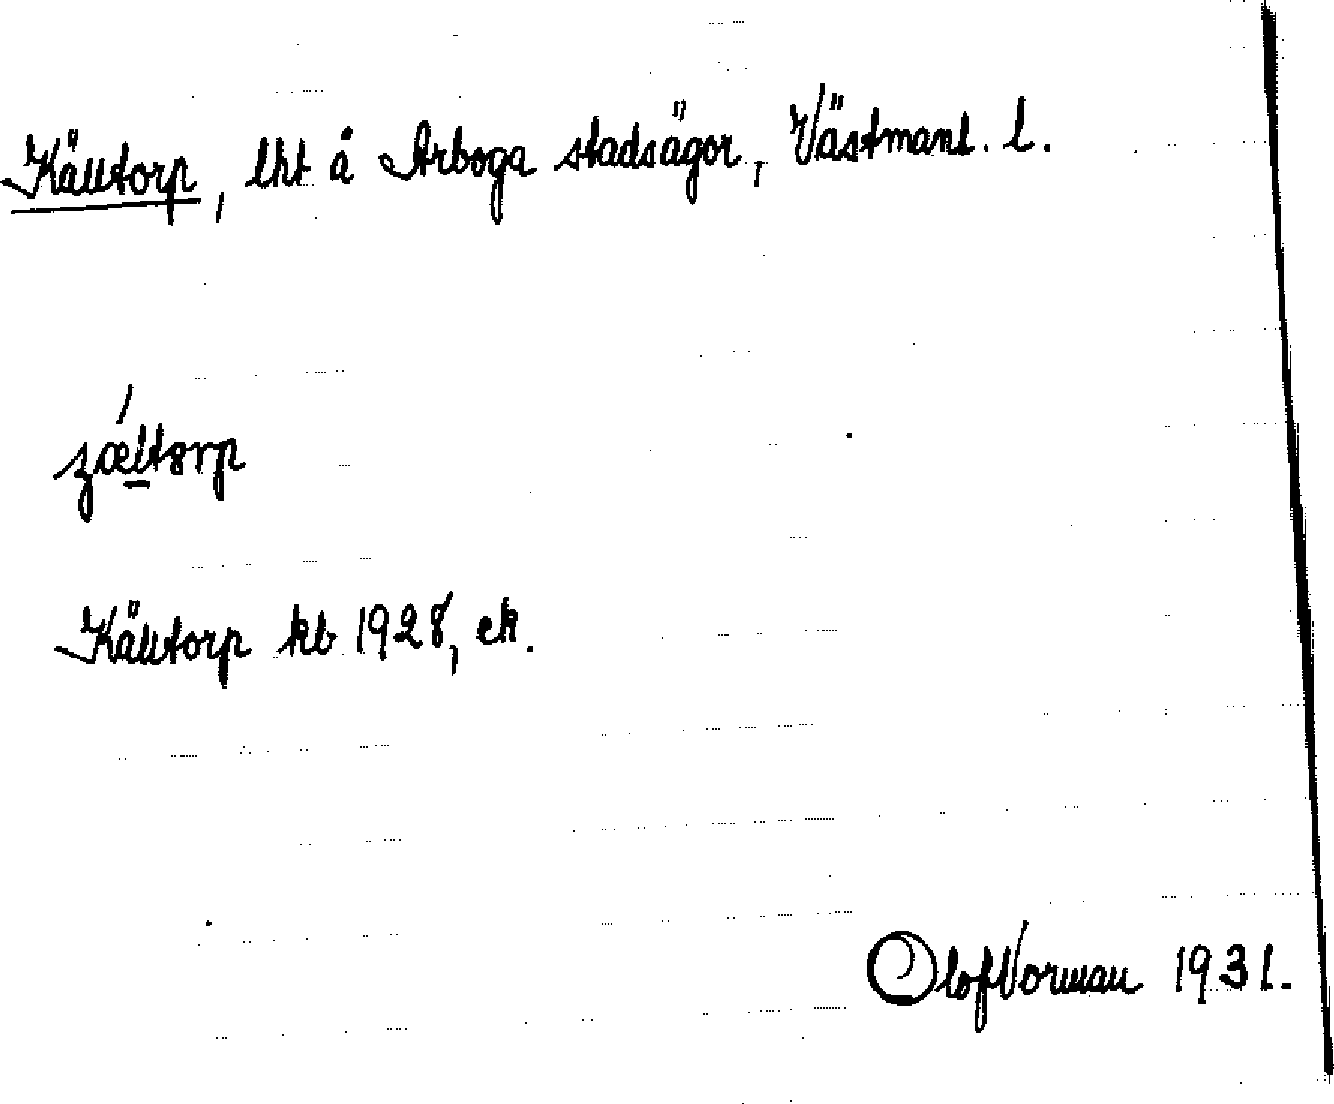 Källtorp, lht å Arboga stadsägor, Västmanl. l.
Källtorp kb 1928, ek.
Olof Norman 1931.